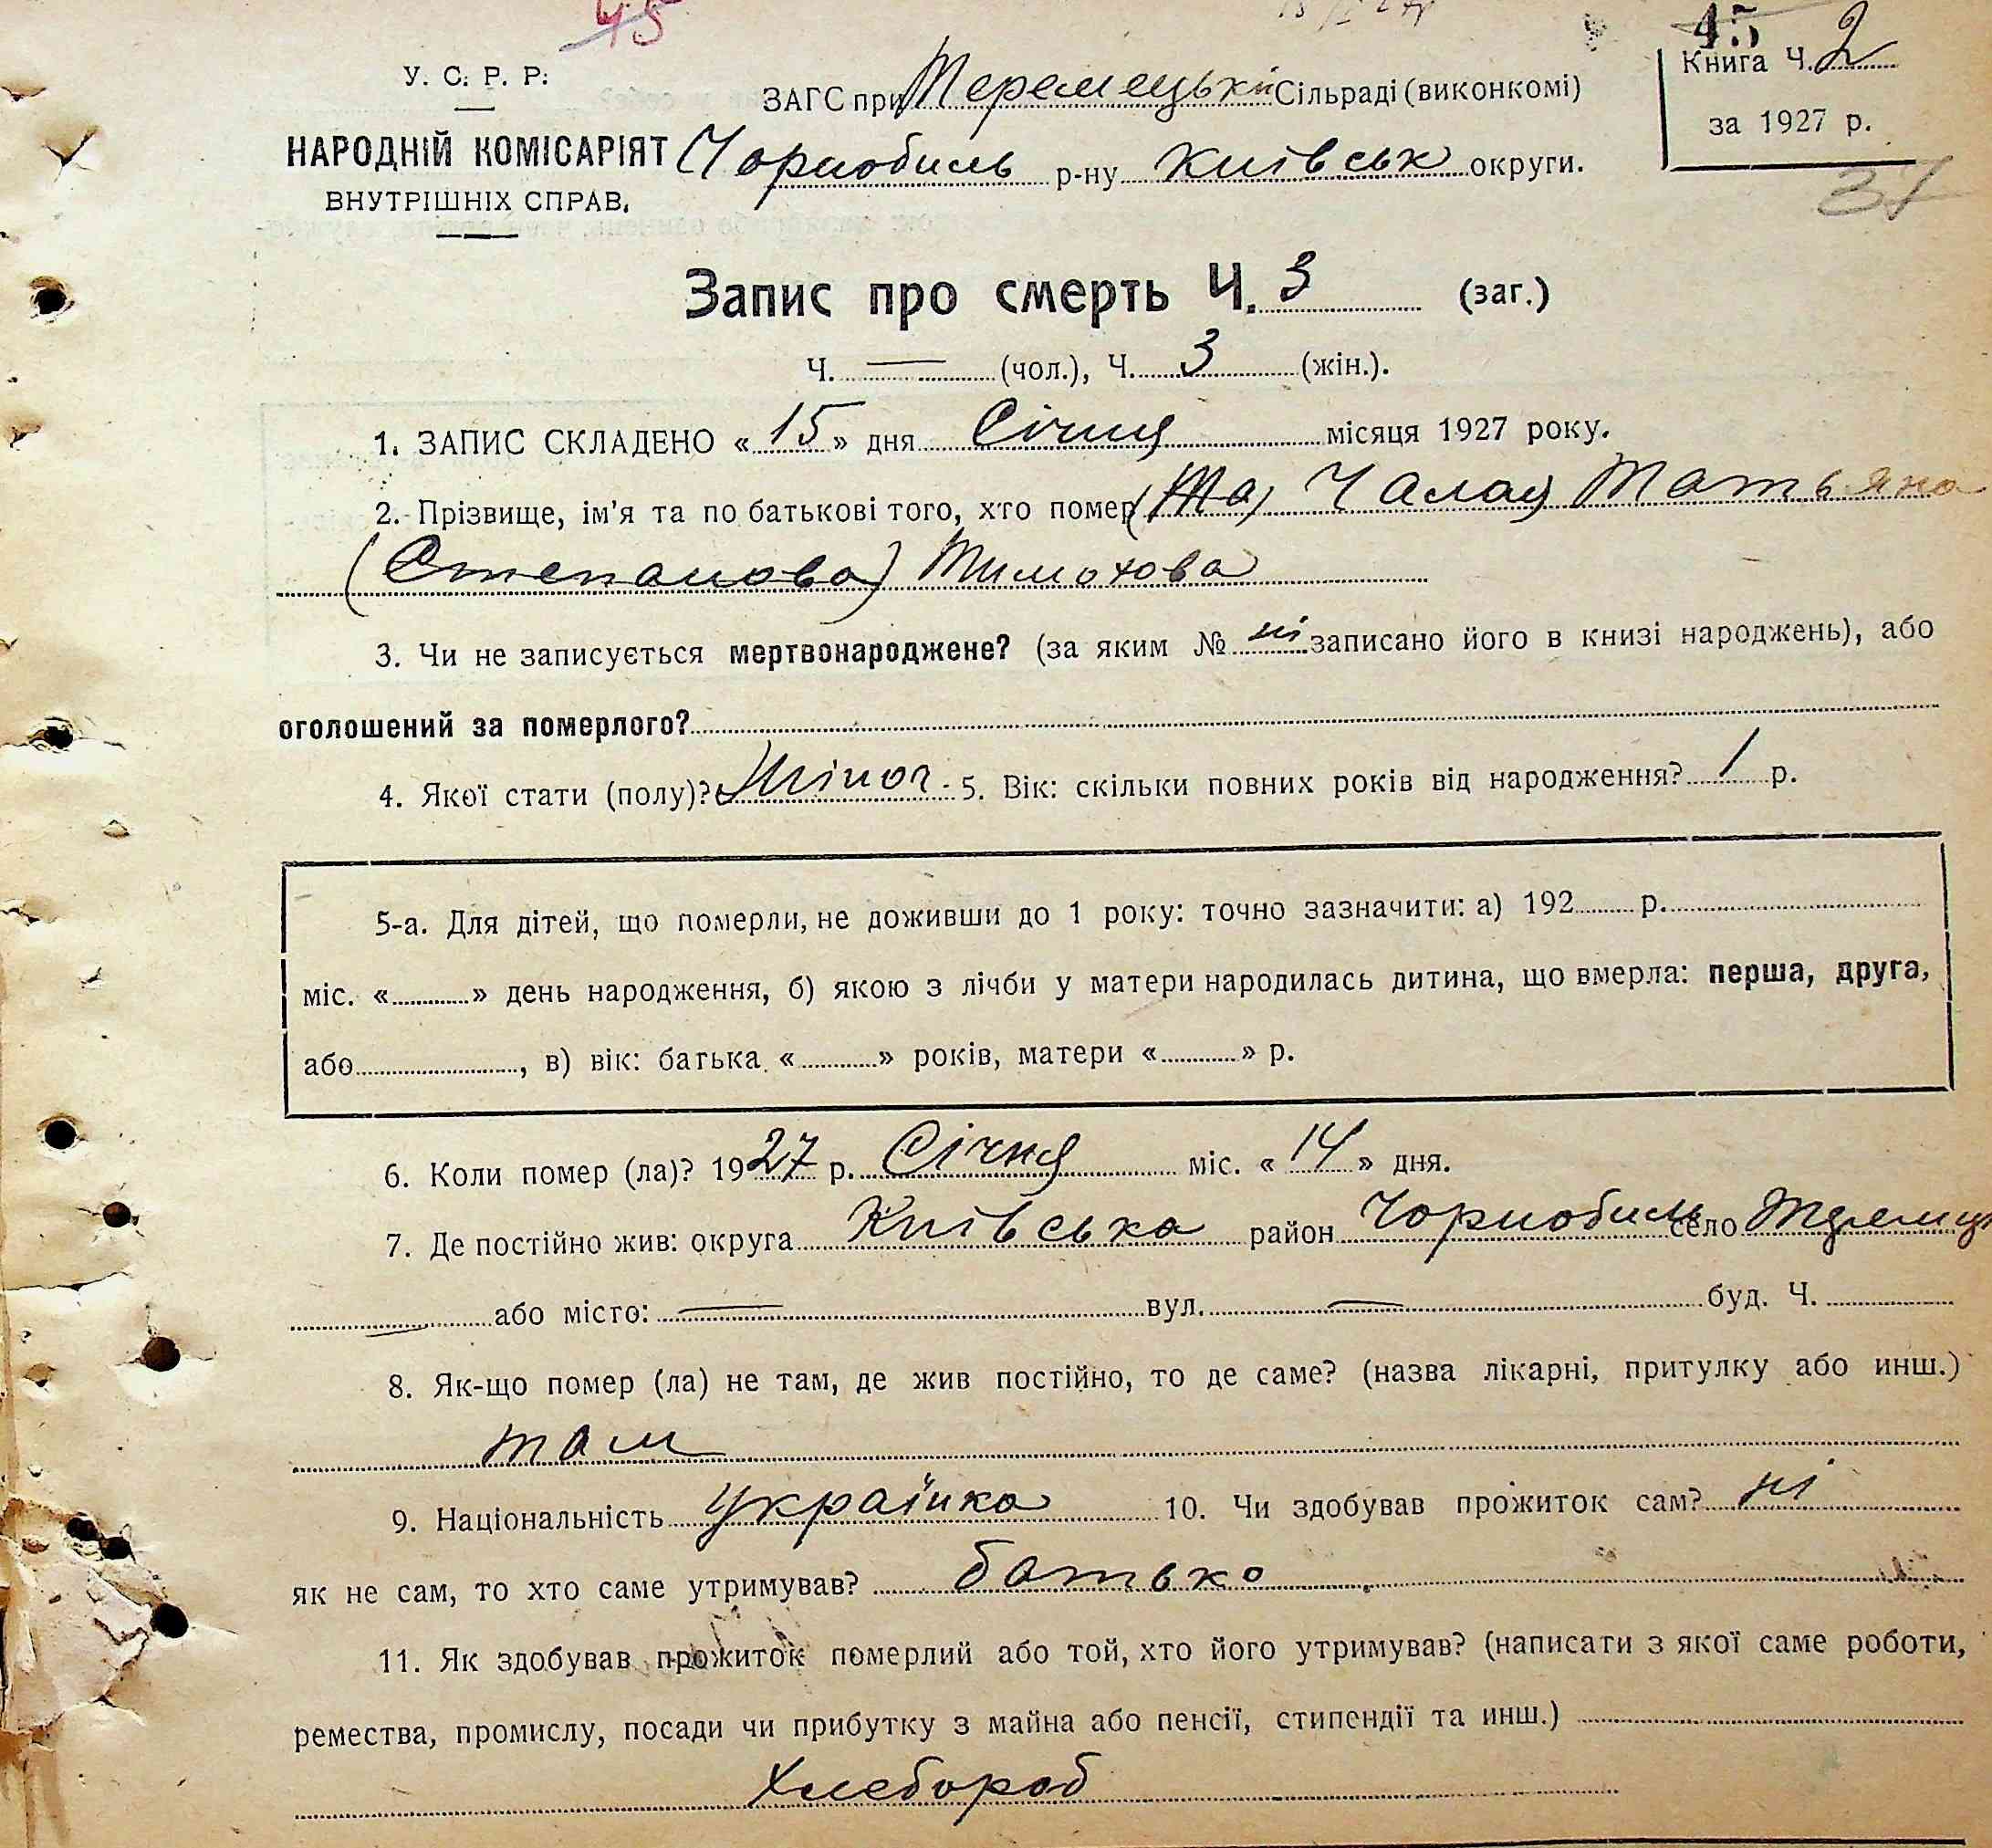 45
45
Книга Ч. 2
У. С. Р. Р.
ЗАГС при Теремецькій Сільраді (виконкомі)
за 1927 р.
НАРОДНІЙ КОМІСАРІЯТ
ВНУТРІШНІХ СПРАВ.
Чорнобиль р-ну Київськ округи.
37
Запис про смерть Ч. 3 (заг.)
Ч. — (чол.), Ч. 3 (жін.).
1. ЗАПИС СКЛАДЕНО « 15 » дня Січня місяця 1927 року.
2. Прізвище, ім'я та по батькові того, хто помер (Та) Чалая Татьяна
(Степанова) Тимохова
3. Чи не записується мертвонароджене? (за яким № ні записано його в книзі народжень), або
оголошений за померлого?
4. Якої стати (полу)? Жіноч. 5. Вік: скільки повних років від народження? 1 р.
5-а. Для дітей, що померли, не доживши до 1 року: точно зазначити: а) 192 р.
міс. « » день народження, б) якою з лічби у матери народилась дитина, що вмерла: перша, друга,
або , в) вік: батька « » років, матери « » р.
6. Коли помер (ла)? 1927 р. Січня міс. « 14 » дня.
7. Де постійно жив: округа Київська район Чорнобиль село Теремці
або місто: — вул. — буд. Ч.
8. Як-що помер (ла) не там, де жив постійно, то де саме? (назва лікарні, притулку або инш.)
там
9. Національність українка 10. Чи здобував прожиток сам? ні
як не сам, то хто саме утримував? батько
11. Як здобував прожиток померлий або той, хто його утримував? (написати з якої саме роботи,
ремества, промислу, посади чи прибутку з майна або пенсії, стипендії та инш.)
Хлебороб